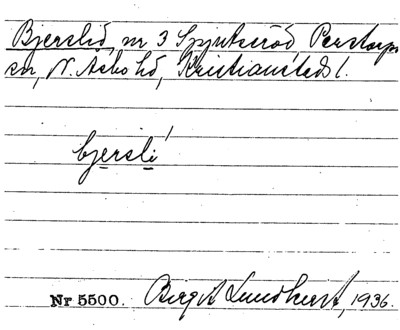 Bjerslid, nr 3 Spjutseröd, Perstorps
sn, N. Åsbo hd, Kristianstads l.
bjersli
Nr 5500. Birgit Lundkvist, 1936.